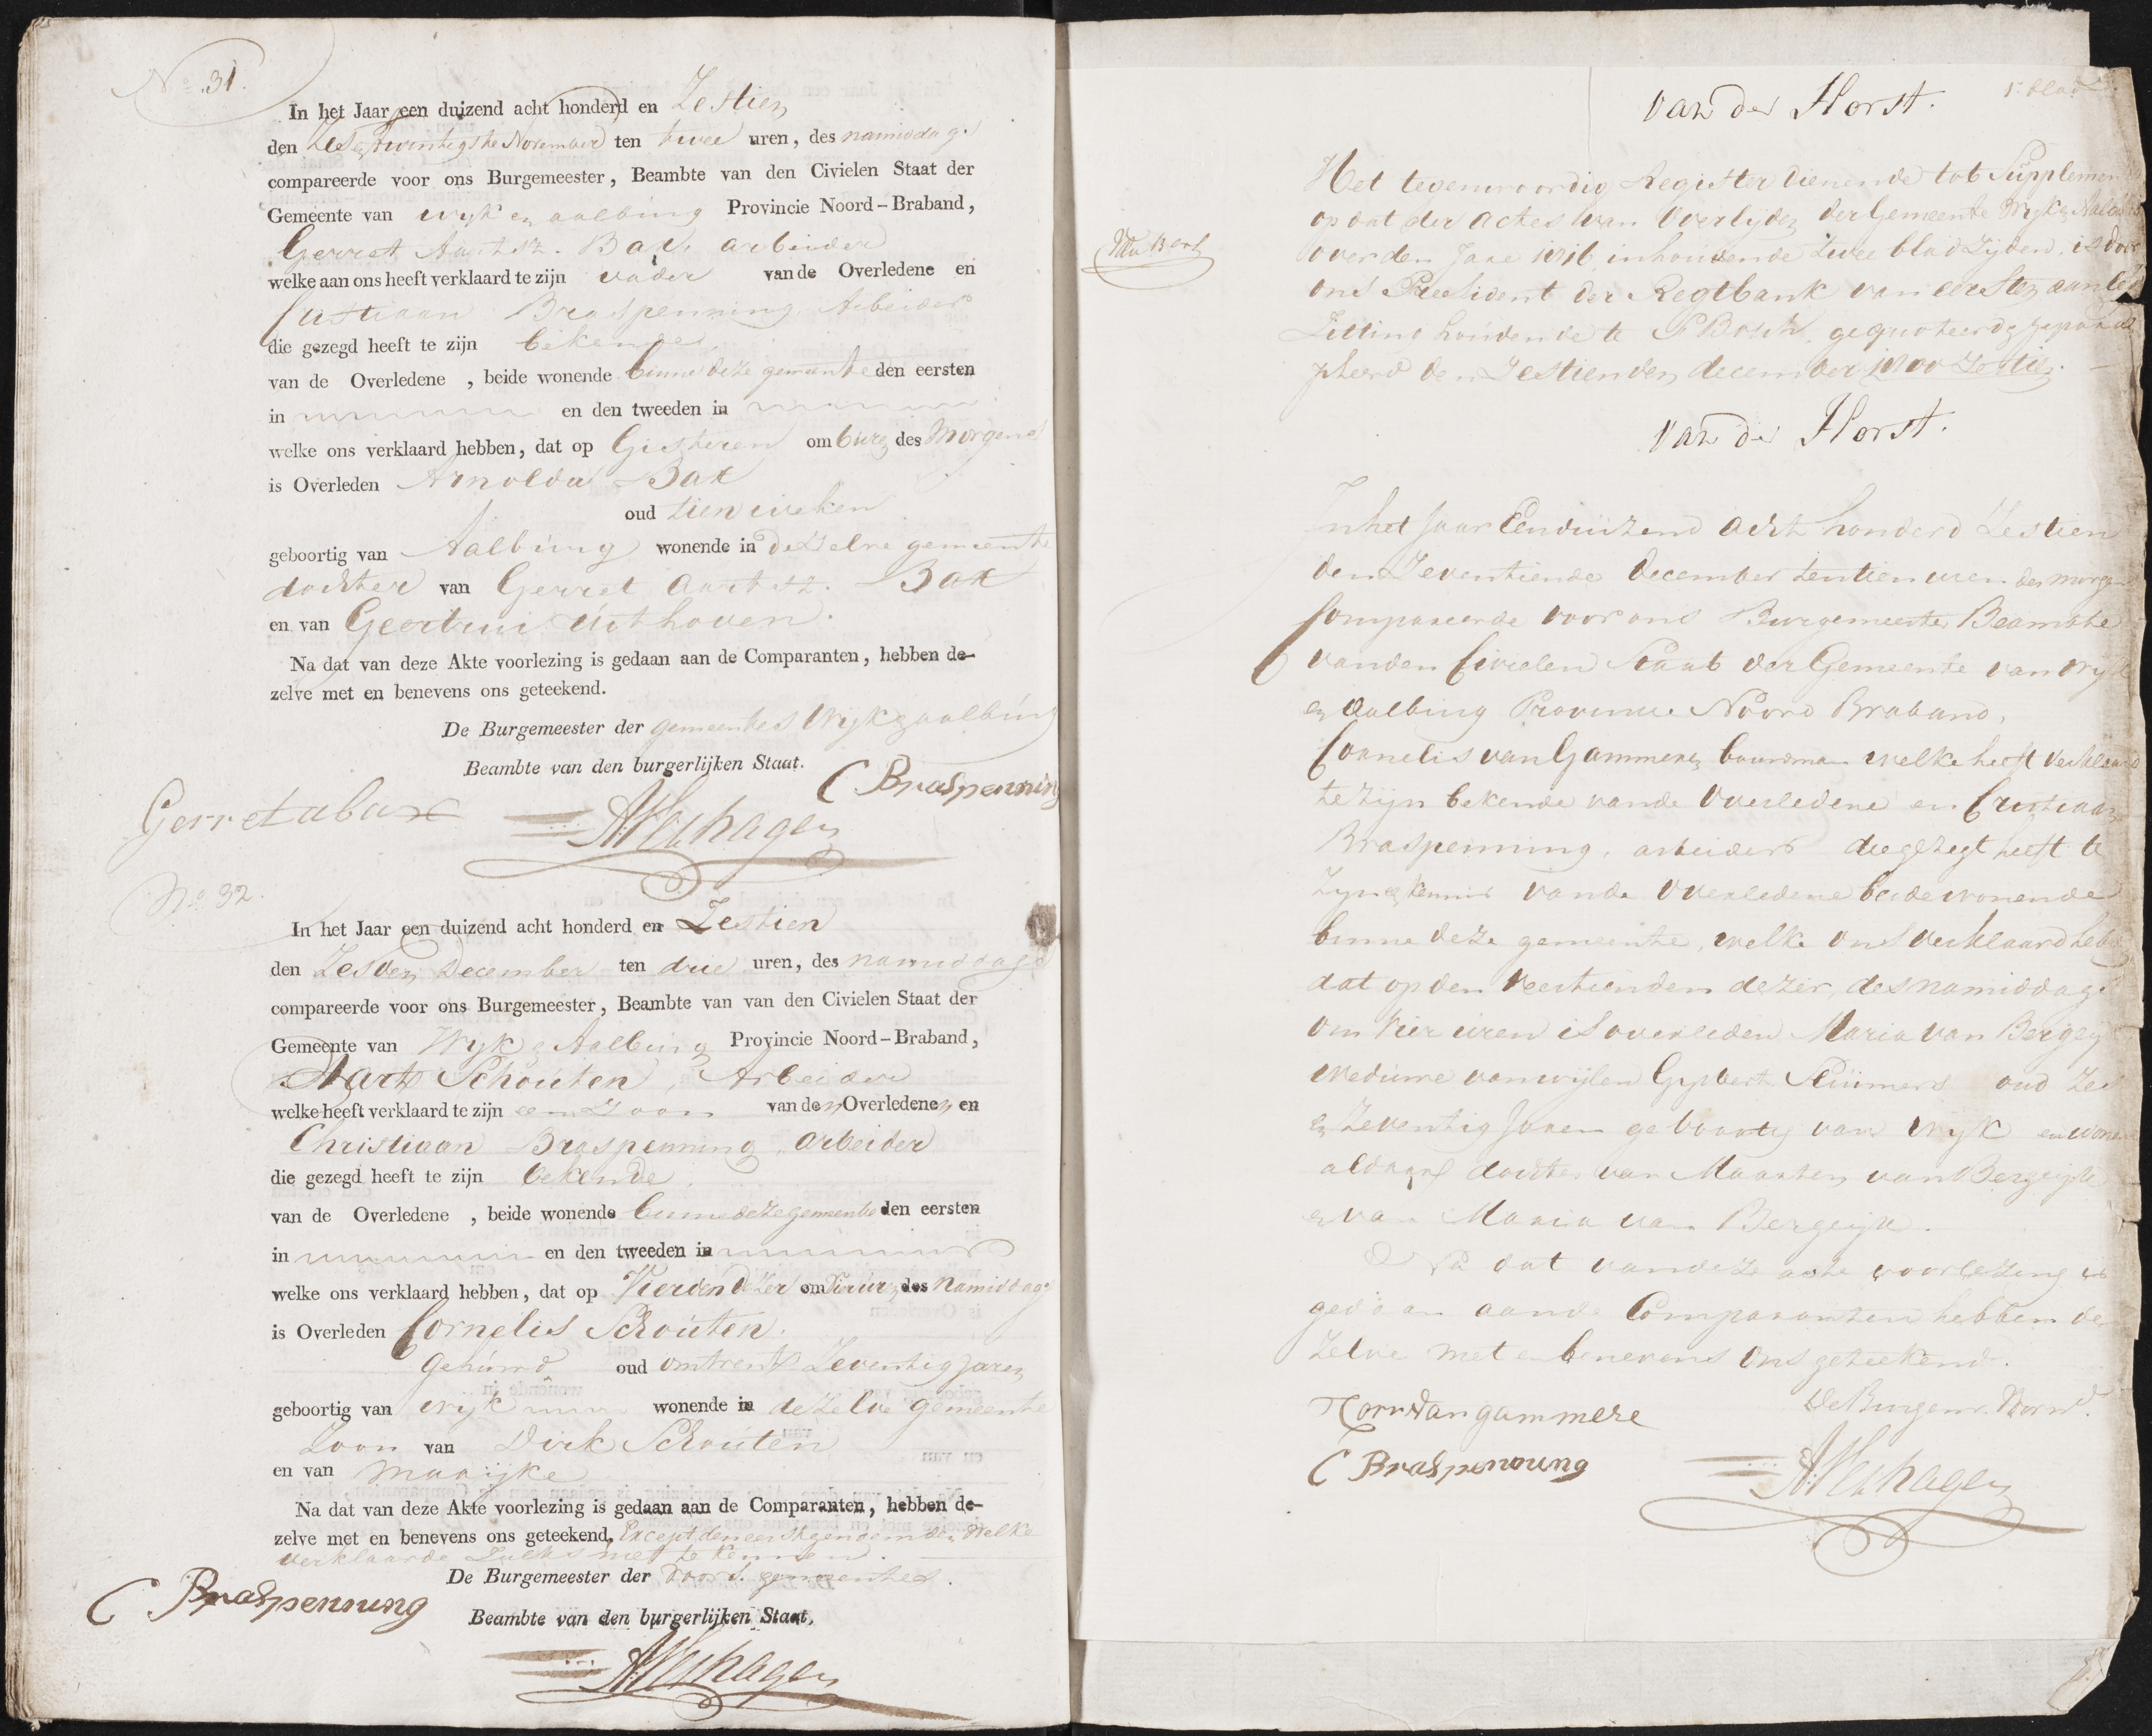 No. 31.
In het Jaar een duizend acht honderd en Zestien
den Zes en twintigste November ten twee uren, des namiddags
compareerde voor ons Burgemeester, Beambte van den Civielen Staat der
Gemeente van wijk en aalburg Provincie Noord-Braband,
Gerret Aartsz. Bax, arbeider
welke aan ons heeft verklaard te zijn vader van de Overledene en
Custiaan Braspenning Arbeider
die gezegd heeft te zijn bekende
van de Overledene , beide wonende binne deze gemeente den eersten
in en den tweeden in
welke ons verklaard hebben, dat op Gisteren om 6 uren des Morgens
is Overleden Arnolda Bax
oud tien weken
geboortig van Aalburg wonende in dezelve gemeente
dochter van Gerret Aartsz. Bax
en van Geertrui Uithoven.
Na dat van deze Akte voorlezing is gedaan aan de Comparanten, hebben de-
zelve met en benevens ons geteekend.
De Burgemeester der gemeentes Wijk en aalburg
Beambte van den burgerlijken Staat.
C Braspenning
Gerret a bax
No. 32.
In het Jaar een duizend acht honderd en Zestien
den Zesden December ten drie uren, des namiddags
compareerde voor ons Burgemeester, Beambte van van den Civielen Staat der
Gemeente van Wijk en Aalburg Provincie Noord-Braband,
Aart Schouten, Arbeider
welke heeft verklaard te zijn een Zoon van den Overledenen en
Christiaan Braspenning, arbeider
die gezegd heeft te zijn bekende
van de Overledene , beide wonende binne deze gemeente den eersten
in en den tweeden in
welke ons verklaard hebben, dat op Vierden dezer om vier uren des Namiddags
is Overleden Cornelis Schouten.
Gehuwd oud omtrent Zeventig jaren
geboortig van wijk wonende in dezelve gemeente
Zoon van Dirk Schouten
en van Maaijke
Na dat van deze Akte voorlezing is gedaan aan de Comparanten, hebben de-
zelve met en benevens ons geteekend, Except den eerstgenoemden welke
verklaarde zulks niet te kennen.
De Burgemeester der voors. gemeentes.
Beambte van den burgerlijken Staat,
C Braspenning
1e blad
van der Horst.
Het tegenwoordig Register dienende tot Supplement
op dat der actes van Overlyden der Gemeente Wijk en Aalburg
over den Jare 1816, inhoudende twee bladzijden, is door
ons President der Regtbank van eersten aanleg
Zitting houdende te s'Bosch, gequoteerd en gepara
pheerd den Zestienden december 1800 Zestien.
van der Horst.
In het Jaar Eenduizend acht honderd Zestien
den Zeventiende December ten tien uren des morgens
Compareerde voor ons Burgemeester Beambte
van den Civielen Staat der Gemeente van Wijk
en Aalburg Provincie Noord Braband,
Cornelis van Gammeren bouwman welke heeft verklaard
te zijn bekende van de Overledene en Cristiaan
Braspenning, arbeider die gezegt heeft te
zijn kennis van de Overledene beide wonende
binne deze gemeente, welke ons verklaard hebben
dat op den Veertienden dezer, des namiddags
om vier uren is overleden Maria van Bergeijk
weduwe van wijlen Gijsbert Suimers oud Zes
en Zeventig Jaren geboortig van Wijk en wonen
aldaar dochter van Maarten van Bergeijk
en van Maria van Bergeijk.
Na dat van deze acte voorlezing is
gedaan aan de Comparanten hebben de
Zelve met en benevens ons geteekend.
De Burgemr. Voornd.
Corn van gammere
C Braspenning